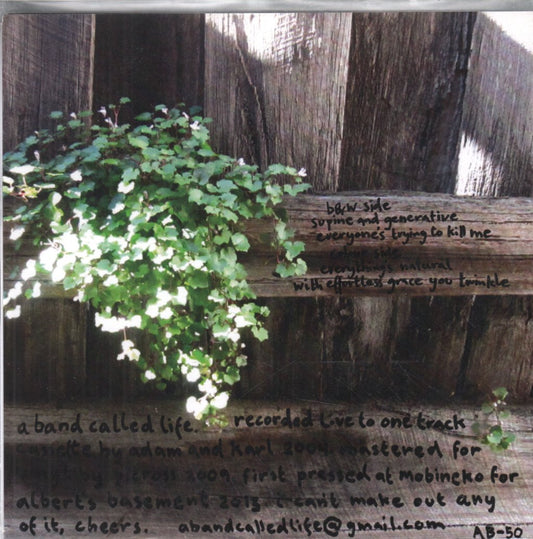 b&w side
supine and generative
everyone's trying to kill me
side
everything's natural
with effortless grace you twinkle
a band called life. recorded live to one track
cassette by adam and karl 2004. mastered for
by p.cross 2009. first pressed at mobineko for
albert's basement 2013. i can't make out any
of it, cheers. abandcalledlife@gmail.com
AB-50